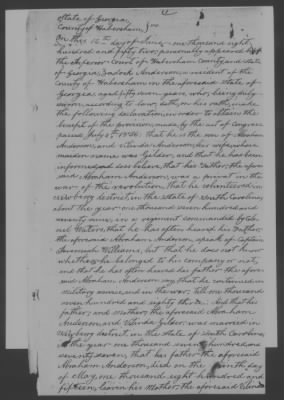 State of Georgia,
County of Habersham,
On this 12th day of June, one thousand eight
hundred and fifty four, personally appeared
the Superior Court of Habersham County and state
of Georgia, Zadock Anderson, a resident of the
County of Habersham in the aforesaid State of
Georgia, aged fifty nine years, who, being duly
sworn according to law, doth, on his oath, make
the following declaration in order to obtain the
benefit of the provision made by the act of Congress
passed July that he is the son of Abraham
Anderson, and Anderson, his wife, whose
maiden name was Gilder, and that he has been
informed, and does believe, that his Father, the afore-
said, Abraham Anderson, was a privat in the
war of the revolution, that he volunteered in
Newberry district, in the State of South Carolina,
about the year one thousand seven hundred and
seventy nine, in a regiment commanded by Colo-
nel Waters, that he has often heard his Father,
the aforesaid Abraham Anderson, speak of Captain
Jeremiah Williams, but that he does not know
whether he belonged to his company or not,
and that he has often heard his father the afore-
said Abraham Anderson, say that he continued in
military service, and in the war, till one thousand
seven hundred and eighty And that his
father, and mother, the aforesaid Abraham
Anderson, and Gilder, was married in
Newberry district in the State of South Carolina,
the year one thousand seven hundred and
seventy seven, that his father the aforesaid
Abraham Anderson, died on the day
of May, one thousand eight hundred and
fifteen, leaving his Mother, the aforesaid